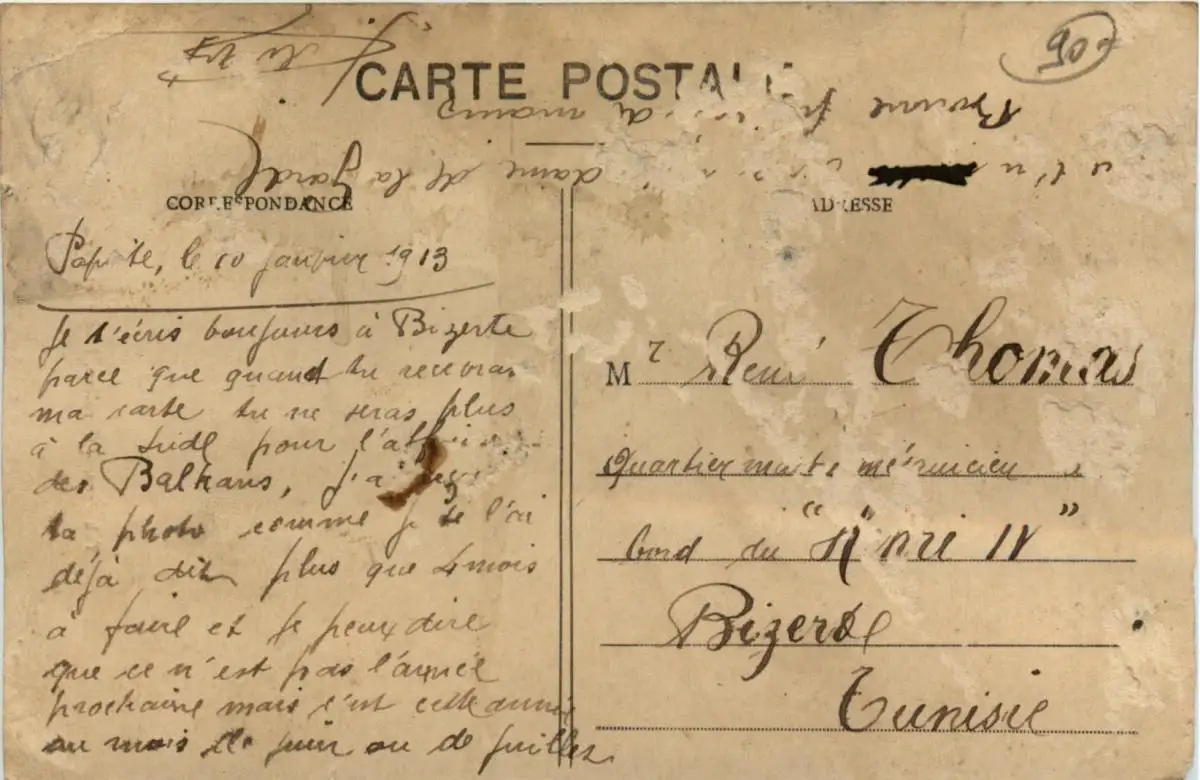 900
CARTE POSTALE
Bonne
dame de la Garde
CORRESPONDANCE
Papeete, le 10 Janvier 1913
Je t'écris toujours à Bizerte
parce que quand tu recevras
ma carte tu ne seras plus
à la pour l'affaire
des Balkans, J'ai reçu
ta photo comme je te l'ai
déjà dit plus que 4 mois
à faire et je peux dire
que ce n'est pas l'année
prochaine mais c'est cette année
au mois de juin ou de juillet.
ADRESSE
Mr René Thomas
Quartier maitre mécanicien à
bord du "Henri IV"
Bizerte
Tunisie